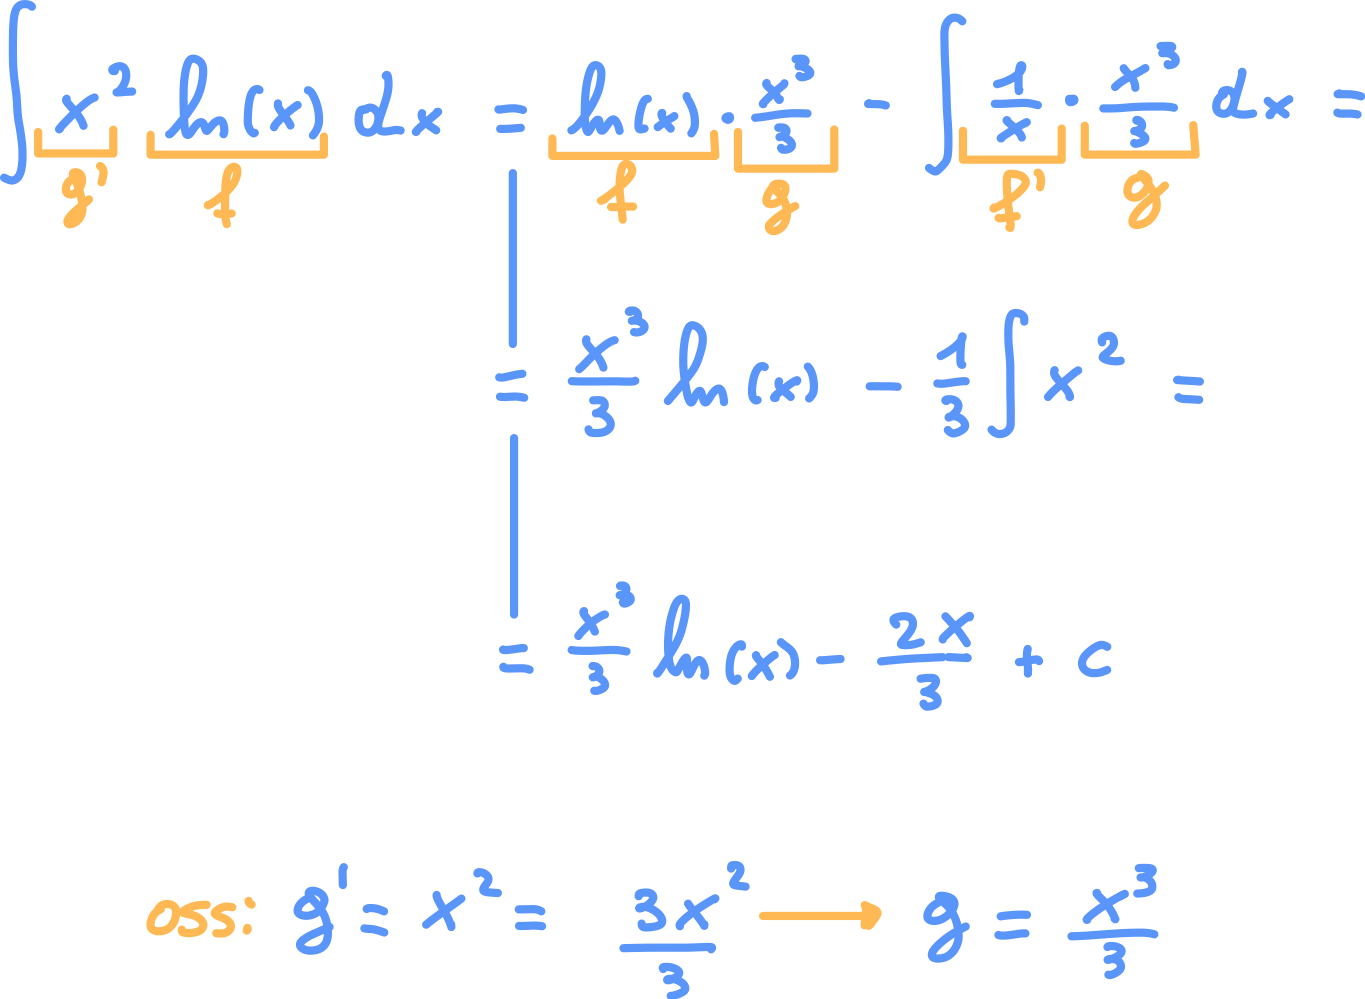 ∫ x² ln(x) dx = ln(x) · x³/3 - ∫ 1/x · x³/3 dx =
g' f f g f' g
= x³/3 ln(x) - 1/3 ∫ x² =
= x³/3 ln(x) - 2x/3 + c
oss: g' = x² = 3x²/3 → g = x³/3